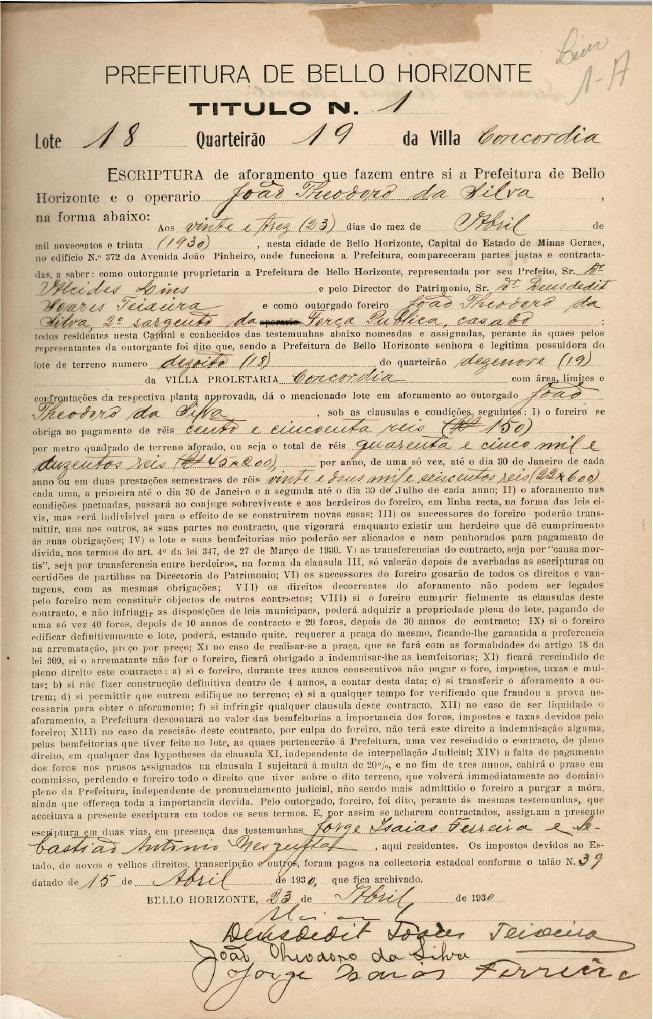 Livro
1-A
PREFEITURA DE BELLO HORIZONTE
TITULO N. 1
Lote 18 Quarteirão 19 da Villa Concordia
ESCRIPTURA de aforamento que fazem entre si a Prefeitura de Bello
Horizonte e o operario João Theodoro da Silva ,
na forma abaixo:
Aos vinte e trez (23) dias do mez de Abril de
mil novecentos e trinta (1930) , nesta cidade de Bello Horizonte, Capital do Estado de Minas Geraes,
no edificio N.º 372 da Avenida João Pinheiro, onde funcciona a Prefeitura, compareceram partes justas e contracta-
das, a saber: como outorgante proprietaria a Prefeitura de Bello Horizonte, representada por seu Prefeito, Sr. Dr.
Alcides Lins e pelo Director do Patrimonio, Sr. Dr. Deusdedit
Soares Teixeira e como outorgado foreiro João Theodoro da
Silva, 2º sargento da operario Força Publica, casado ;
todos residentes nesta Capital e conhecidos das testemunhas abaixo nomeadas e assignadas, perante ás quaes pelos
representantes da outorgante foi dito que, sendo a Prefeitura de Bello Horizonte senhora e legitima possuidora do
lote de terreno numero dezoito (18) do quarteirão dezenove (19)
da VILLA PROLETARIA Concordia com área, limites e
confrontações da respectiva planta approvada, dá o mencionado lote em aforamento ao outorgado João
Theodoro da Silva , sob as clausulas e condições seguintes: I) o foreiro se
obriga ao pagamento de réis cento e cincoenta reis (Rs 150)
por metro quadrado de terreno aforado, ou seja o total de réis quarenta e cinco mil e
duzentos reis (Rs 45$200) por anno, de uma só vez, até o dia 30 de Janeiro de cada
anno ou em duas prestações semestraes de réis vinte e dous mil e seiscentos reis (22$600)
cada uma, a primeira até o dia 30 de Janeiro e a segunda até o dia 30 de Julho de cada anno; II) o aforamento nas
condições pactuadas, passará ao conjuge sobrevivente e aos herdeiros do foreiro, em linha recta, na forma das leis ci-
vis, mas será indivisivel para o effeito de se construirem novas casas; III) os successores do foreiro poderão trans-
mittir, uns aos outros, as suas partes no contracto, que vigorará emquanto existir um herdeiro que dê cumprimento
ás suas obrigações; IV) o lote e suas bemfeitorias não poderão ser alienados e nem penhorados para pagamento de
divida, nos termos do art. 4º da lei 347, de 27 de Março de 1930. V) as transferencias do contracto, seja por "causa mor-
tis", seja por transferencia entre herdeiros, na forma da clausula III, só valerão depois de averbadas as escripturas ou
certidões de partilhas na Directoria do Patrimonio; VI) os successores do foreiro gosarão de todos os direitos e van-
tagens, com as mesmas obrigações; VII) os direitos decorrentes do aforamento não podem ser legados
pelo foreiro nem constituir objectos de outros contractos; VIII) si o foreiro cumprir fielmente as clausulas deste
contracto, e não infringir as disposições de leis municipaes, poderá adquirir a propriedade plena do lote, pagando de
uma só vez 40 foros, depois de 10 annos de contracto e 20 foros, depois de 30 annos de contracto; IX) si o foreiro
edificar definitivamente o lote, poderá, estando quite, requerer a praça do mesmo, ficando-lhe garantida a preferencia
na arrematação, preço por preço; X) no caso de realisar-se a praça, que se fará com as formalidades do artigo 18 da
lei 309, si o arrematante não for o foreiro, ficará obrigado a indemnisar-lhe as bemfeitorias; XI) ficará rescindido de
pleno direito este contracto: a) si o foreiro, durante tres annos consecutivos não pagar o foro, impostos, taxas e mul-
tas; b) si não fizer construcção definitiva dentro de 4 annos, a contar desta data; c) si transferir o aforamento a ou-
trem; d) si permittir que outrem edifique no terreno; e) si a qualquer tempo for verificado que fraudou a prova ne-
cessaria para obter o aforamento; f) si infringir qualquer clausula deste contracto. XII) no caso de ser liquidado o
aforamento, a Prefeitura descontará no valor das bemfeitorias a importancia dos foros, impostos e taxas devidos pelo
foreiro; XIII) no caso da rescisão deste contracto, por culpa do foreiro, não terá este direito a indemnisação alguma,
pelas bemfeitorias que tiver feito no lote, as quaes pertencerão á Prefeitura, uma vez rescindido o contracto, de pleno
direito, em qualquer das hypotheses da clausula XI, independente de interpellação Judicial; XIV) a falta de pagamento
dos foros nos prasos assignados na clausula I sujeitará á multa de 20%, e no fim de tres annos, cahirá o praso em
commisso, perdendo o foreiro todo o direito que tiver sobre o dito terreno, que volverá immediatamente ao dominio
pleno da Prefeitura, independente de pronunciamento judicial, não sendo mais admittido o foreiro a purgar a móra,
ainda que offereça toda a importancia devida. Pelo outorgado, foreiro, foi dito, perante ás mesmas testemunhas, que
acceitava a presente escriptura em todos os seus termos. E, por assim se acharem contractados, assignam a presente
escriptura em duas vias, em presença das testemunhas Jorge Isaias Ferreira e Se-
bastião Antonio , aqui residentes. Os impostos devidos ao Es-
tado, de novos e velhos direitos, transcripção e outros, foram pagos na collectoria estadoal conforme o talão N. 39
datado de 15 de Abril de 1930, que fica archivado.
BELLO HORIZONTE, 23 de Abril de 1930
Deusdedit Soares Teixeira
João Theodoro da Silva
Jorge Isaias Ferreira